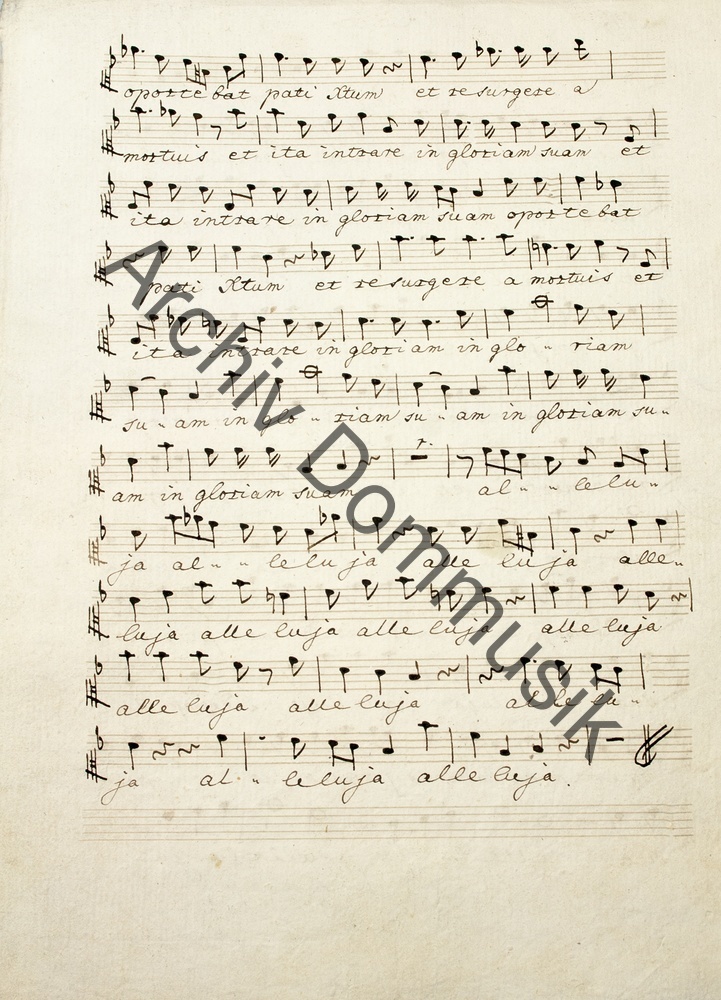 oportebat pati Xtum et resurgere a
mortuis et ita intrare in gloriam suam et
ita intrare in gloriam suam oportebat
pati Xtum et resurgere a mortuis et
ita intrare in gloriam in glo - riam
su - am in glo - riam su - am in gloriam su -
am in gloriam suam al - - lelu -
ja al - - leluja alle luja alle -
luja alle luja alle luja alle luja
alle luja alle luja al le lu -
ja al - leluja alle luja.
Archiv Dommusik